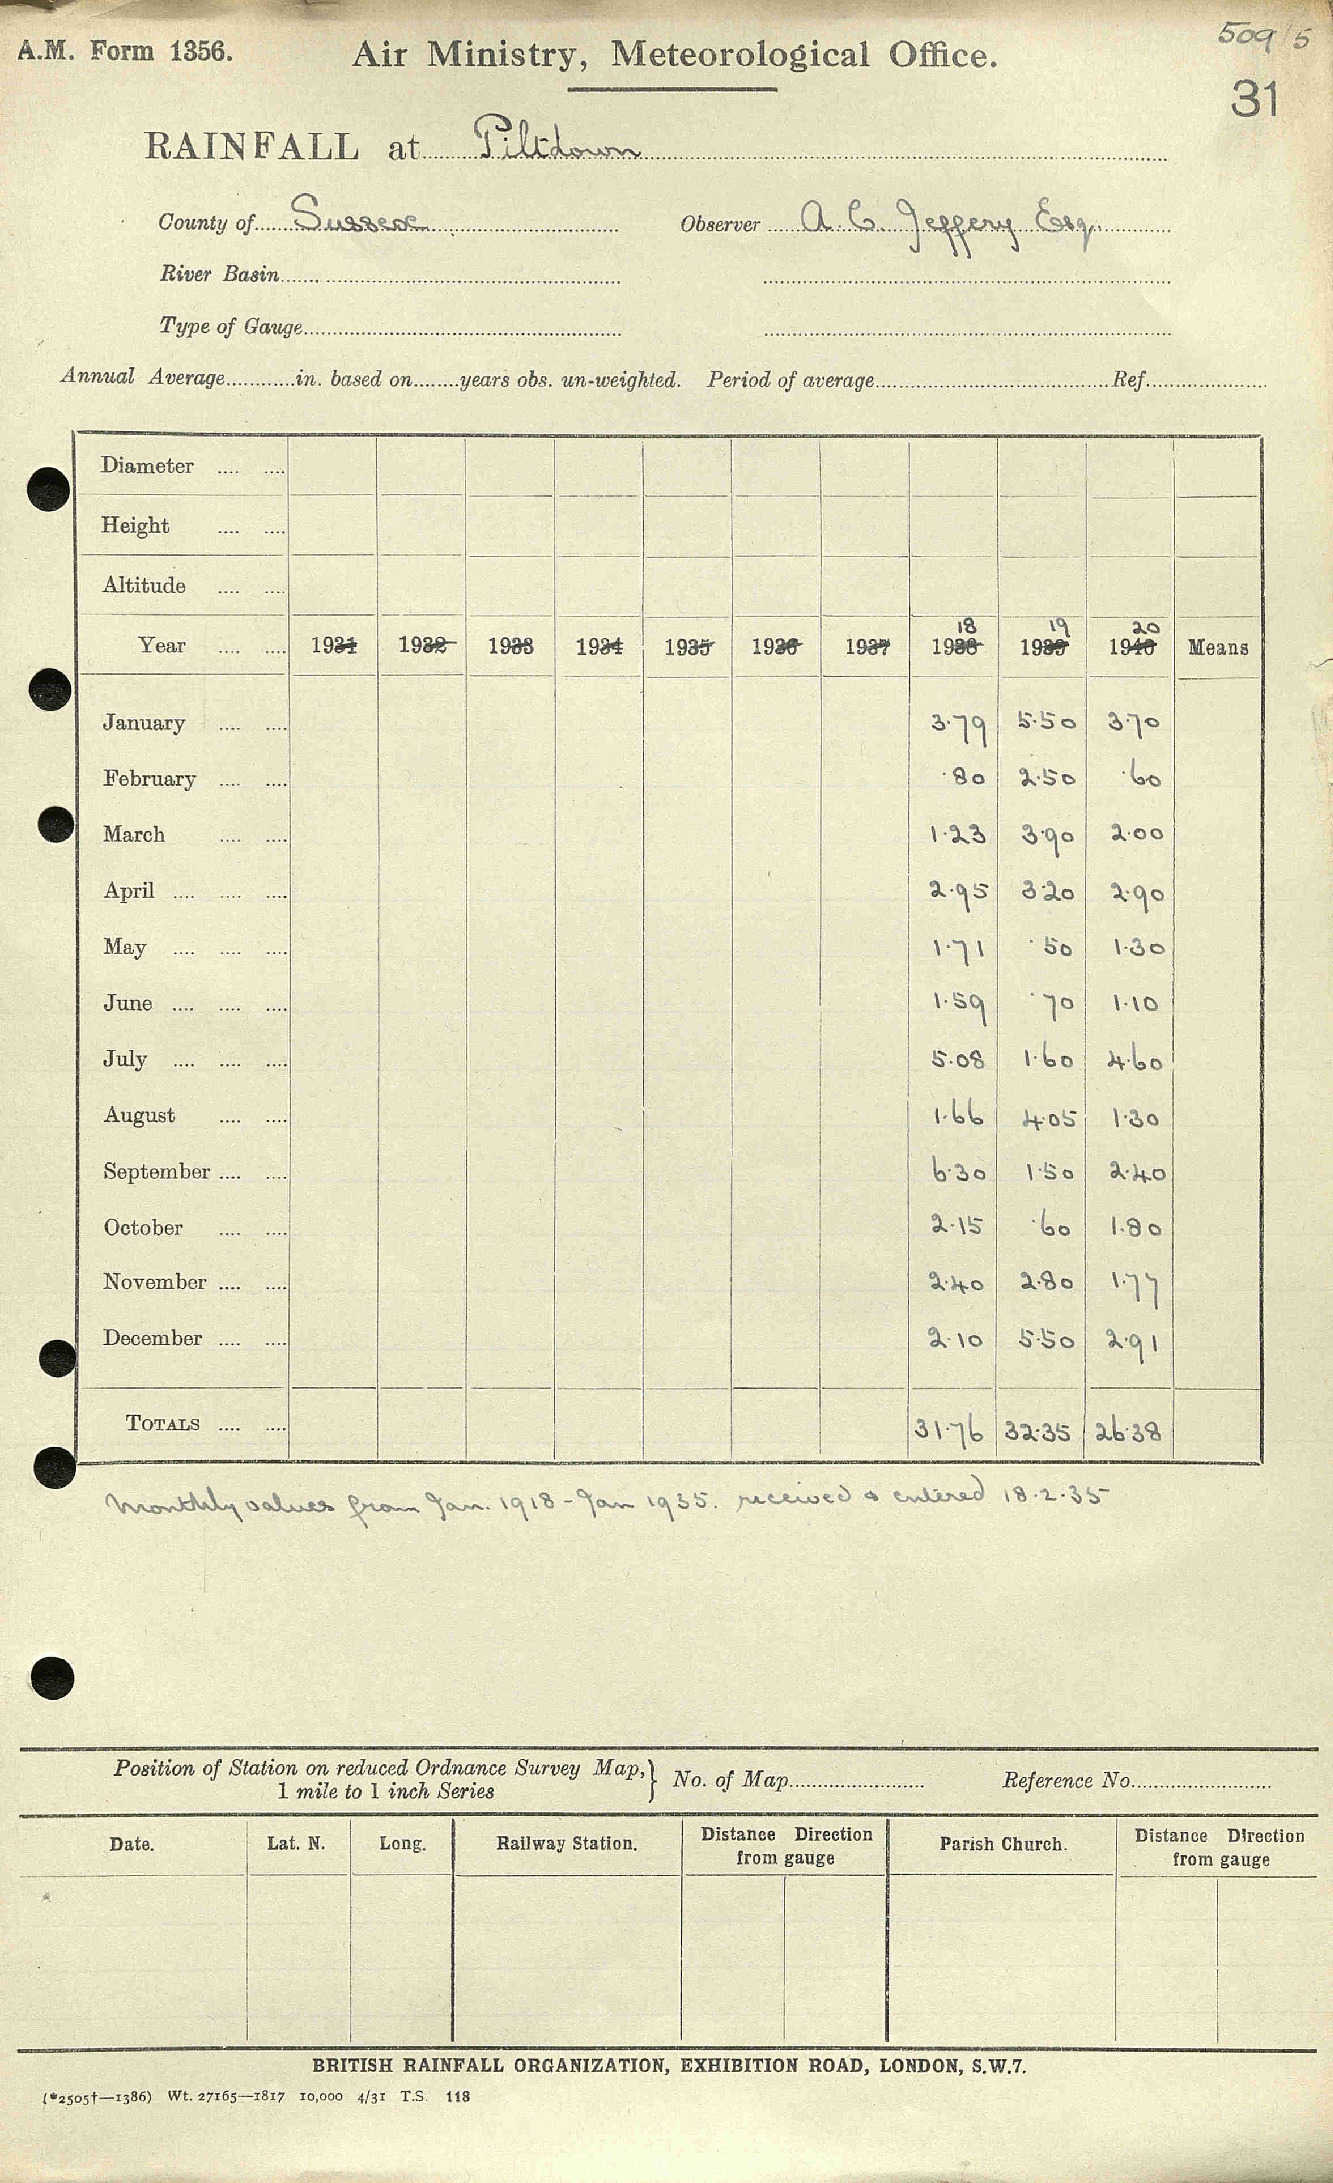 509/5
A.M. Form 1356. Air Ministry, Meteorological Office.
31
RAINFALL at Piltdown
County of Sussex Observer A. C. Jeffery Esq.
River Basin
Type of Gauge
Annual Average in. based on years obs. un-weighted. Period of average Ref.
Diameter
Height
Altitude
18 19 20
Year 1931 1932 1933 1934 1935 1936 1937 1938 1939 1940 Means
January 3.79 5.50 3.70
February .80 2.50 .60
March 1.23 3.90 2.00
April 2.95 3.20 2.90
May 1.71 .50 1.30
June 1.59 .70 1.10
July 5.08 1.60 4.60
August 1.66 4.05 1.30
September 6.30 1.50 2.40
October 2.15 .60 1.80
November 2.40 2.80 1.77
December 2.10 5.50 2.91
TOTALS 31.76 32.35 26.38
Monthly values from Jan. 1918 - Jan 1935. received & entered 18.2.35
Position of Station on reduced Ordnance Survey Map, } No. of Map Reference No.
1 mile to 1 inch Series
Date. Lat. N. Long. Railway Station. Distance Direction from gauge Parish Church. Distance Direction from gauge
BRITISH RAINFALL ORGANIZATION, EXHIBITION ROAD, LONDON, S.W.7.
(*2505†—1386) Wt. 27165—1817 10,000 4/31 T.S. 118